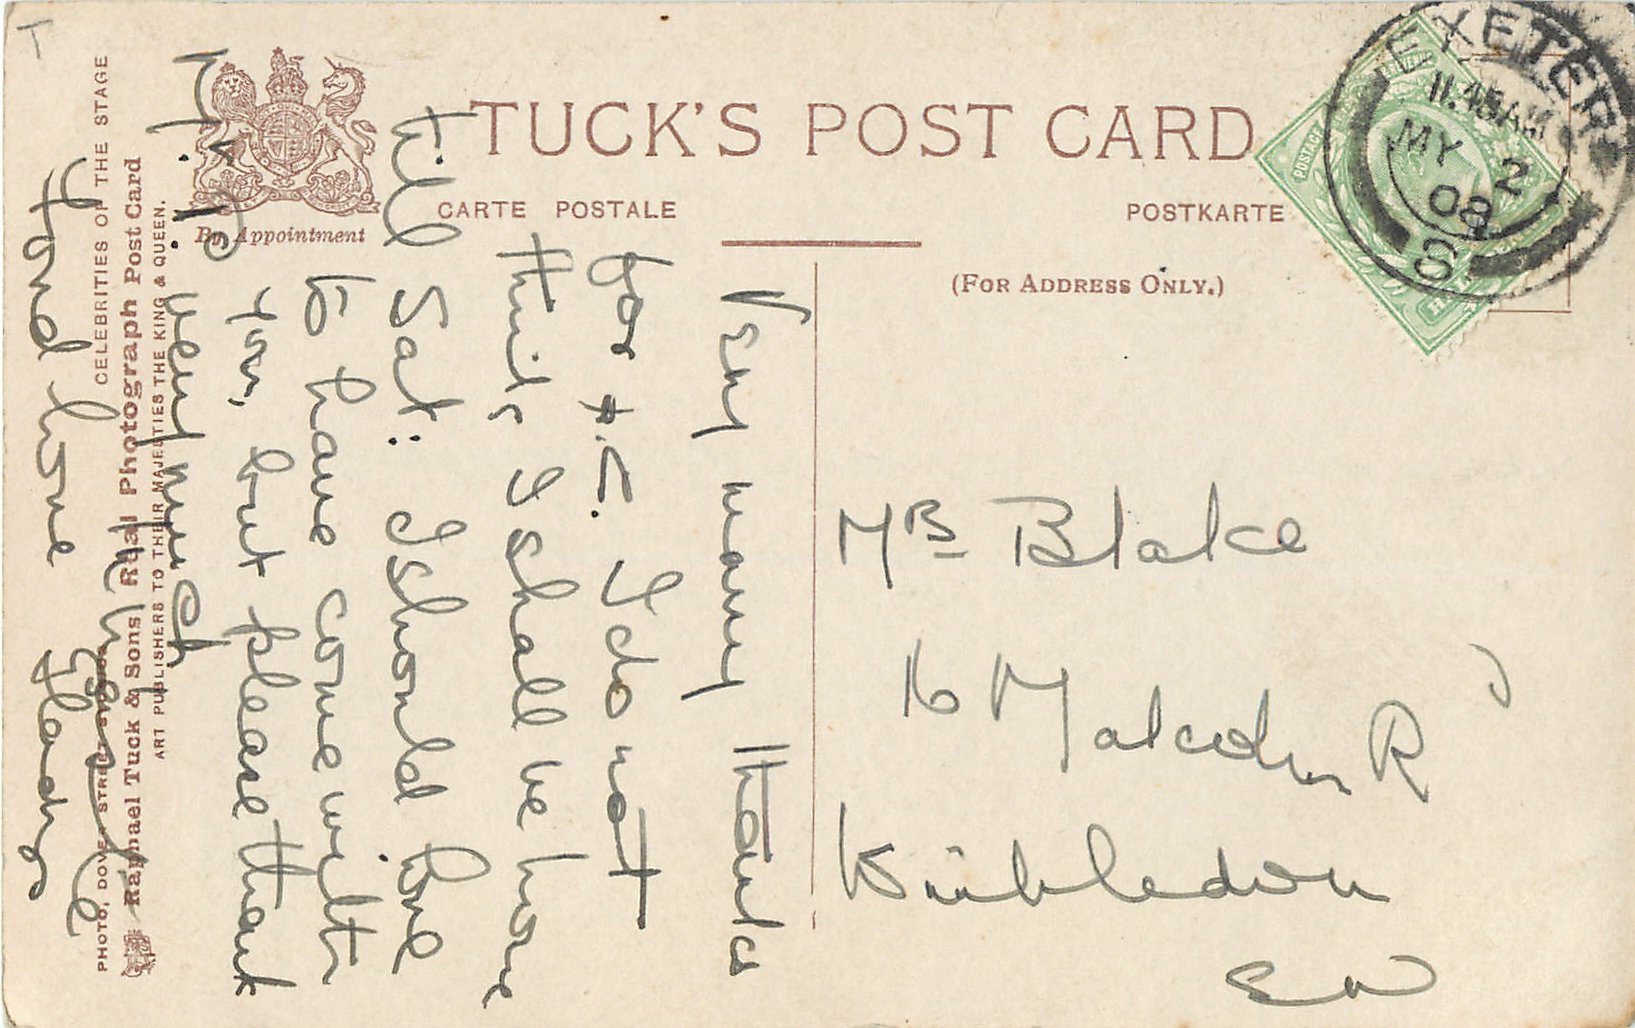 TUCK'S POST CARD
CARTE POSTALE
POSTKARTE
By Appointment
(FOR ADDRESS ONLY.)
EXETER
11.45AM
MY 2
08
S
POSTAGE
Very many thanks
for p.c. I do not
think I shall be home
till Sat: I should love
to have come with
you, but please thank
very much
Fond love Gladys
Mrs Blake
16 Malcolm Rd
Wimbledon
SW
PHOTO, DOVER STREET STUDIOS. CELEBRITIES OF THE STAGE
Raphael Tuck & Sons Real Photograph Post Card
ART PUBLISHERS TO THEIR MAJESTIES THE KING & QUEEN.